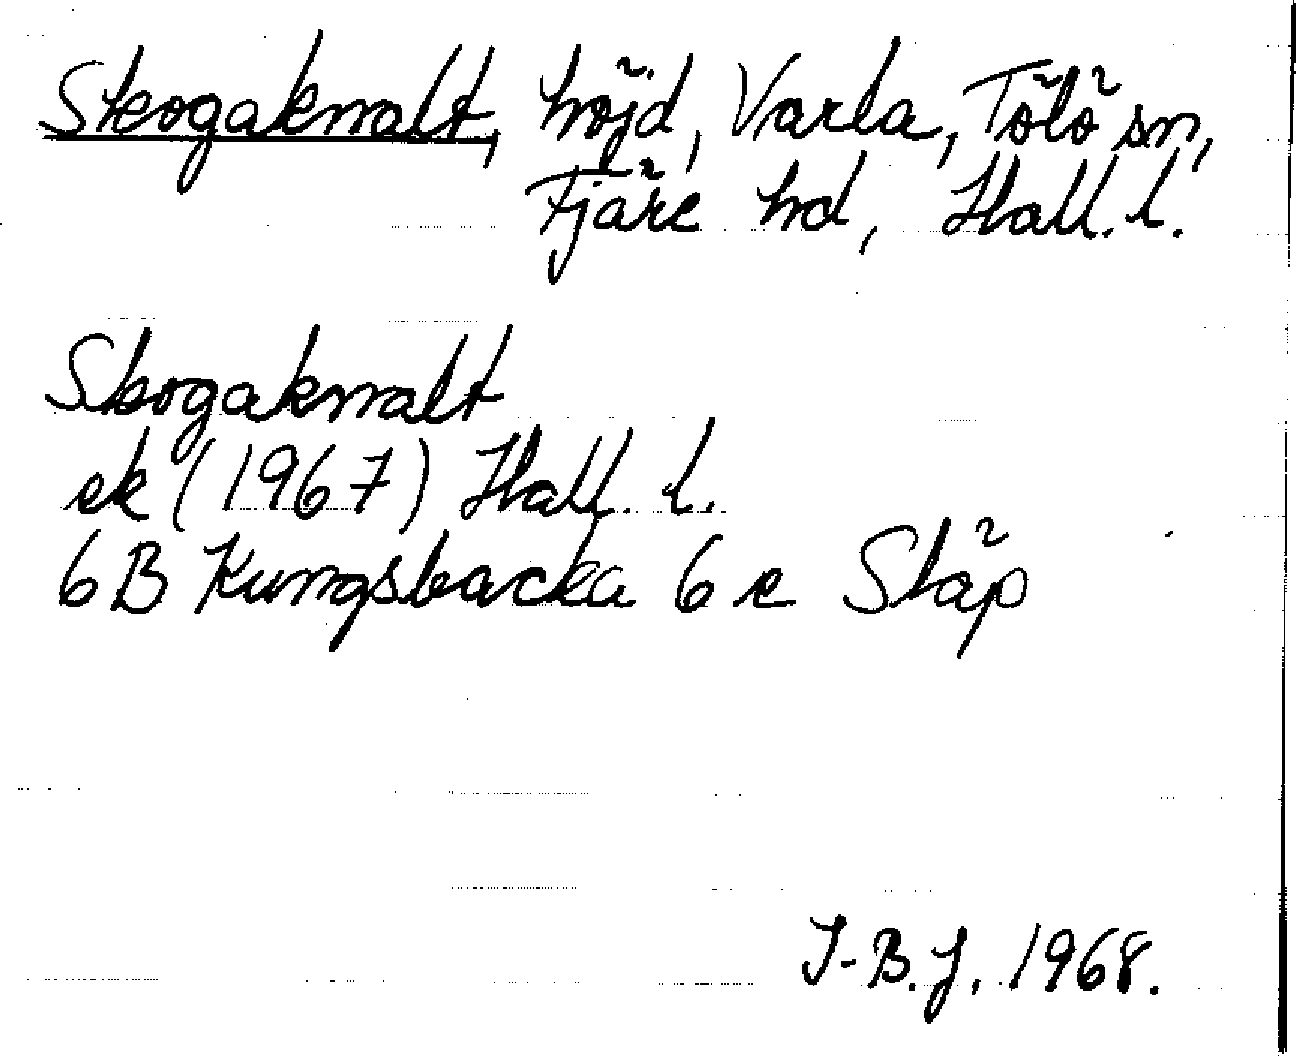 Skogaknalt, höjd, Varla, Tölö sn,
Fjäre hd, Hall. l.
Skogaknalt
ek (1967) Hall. l.
6B Kungsbacka 6 e Släp
I-B.J, 1968.